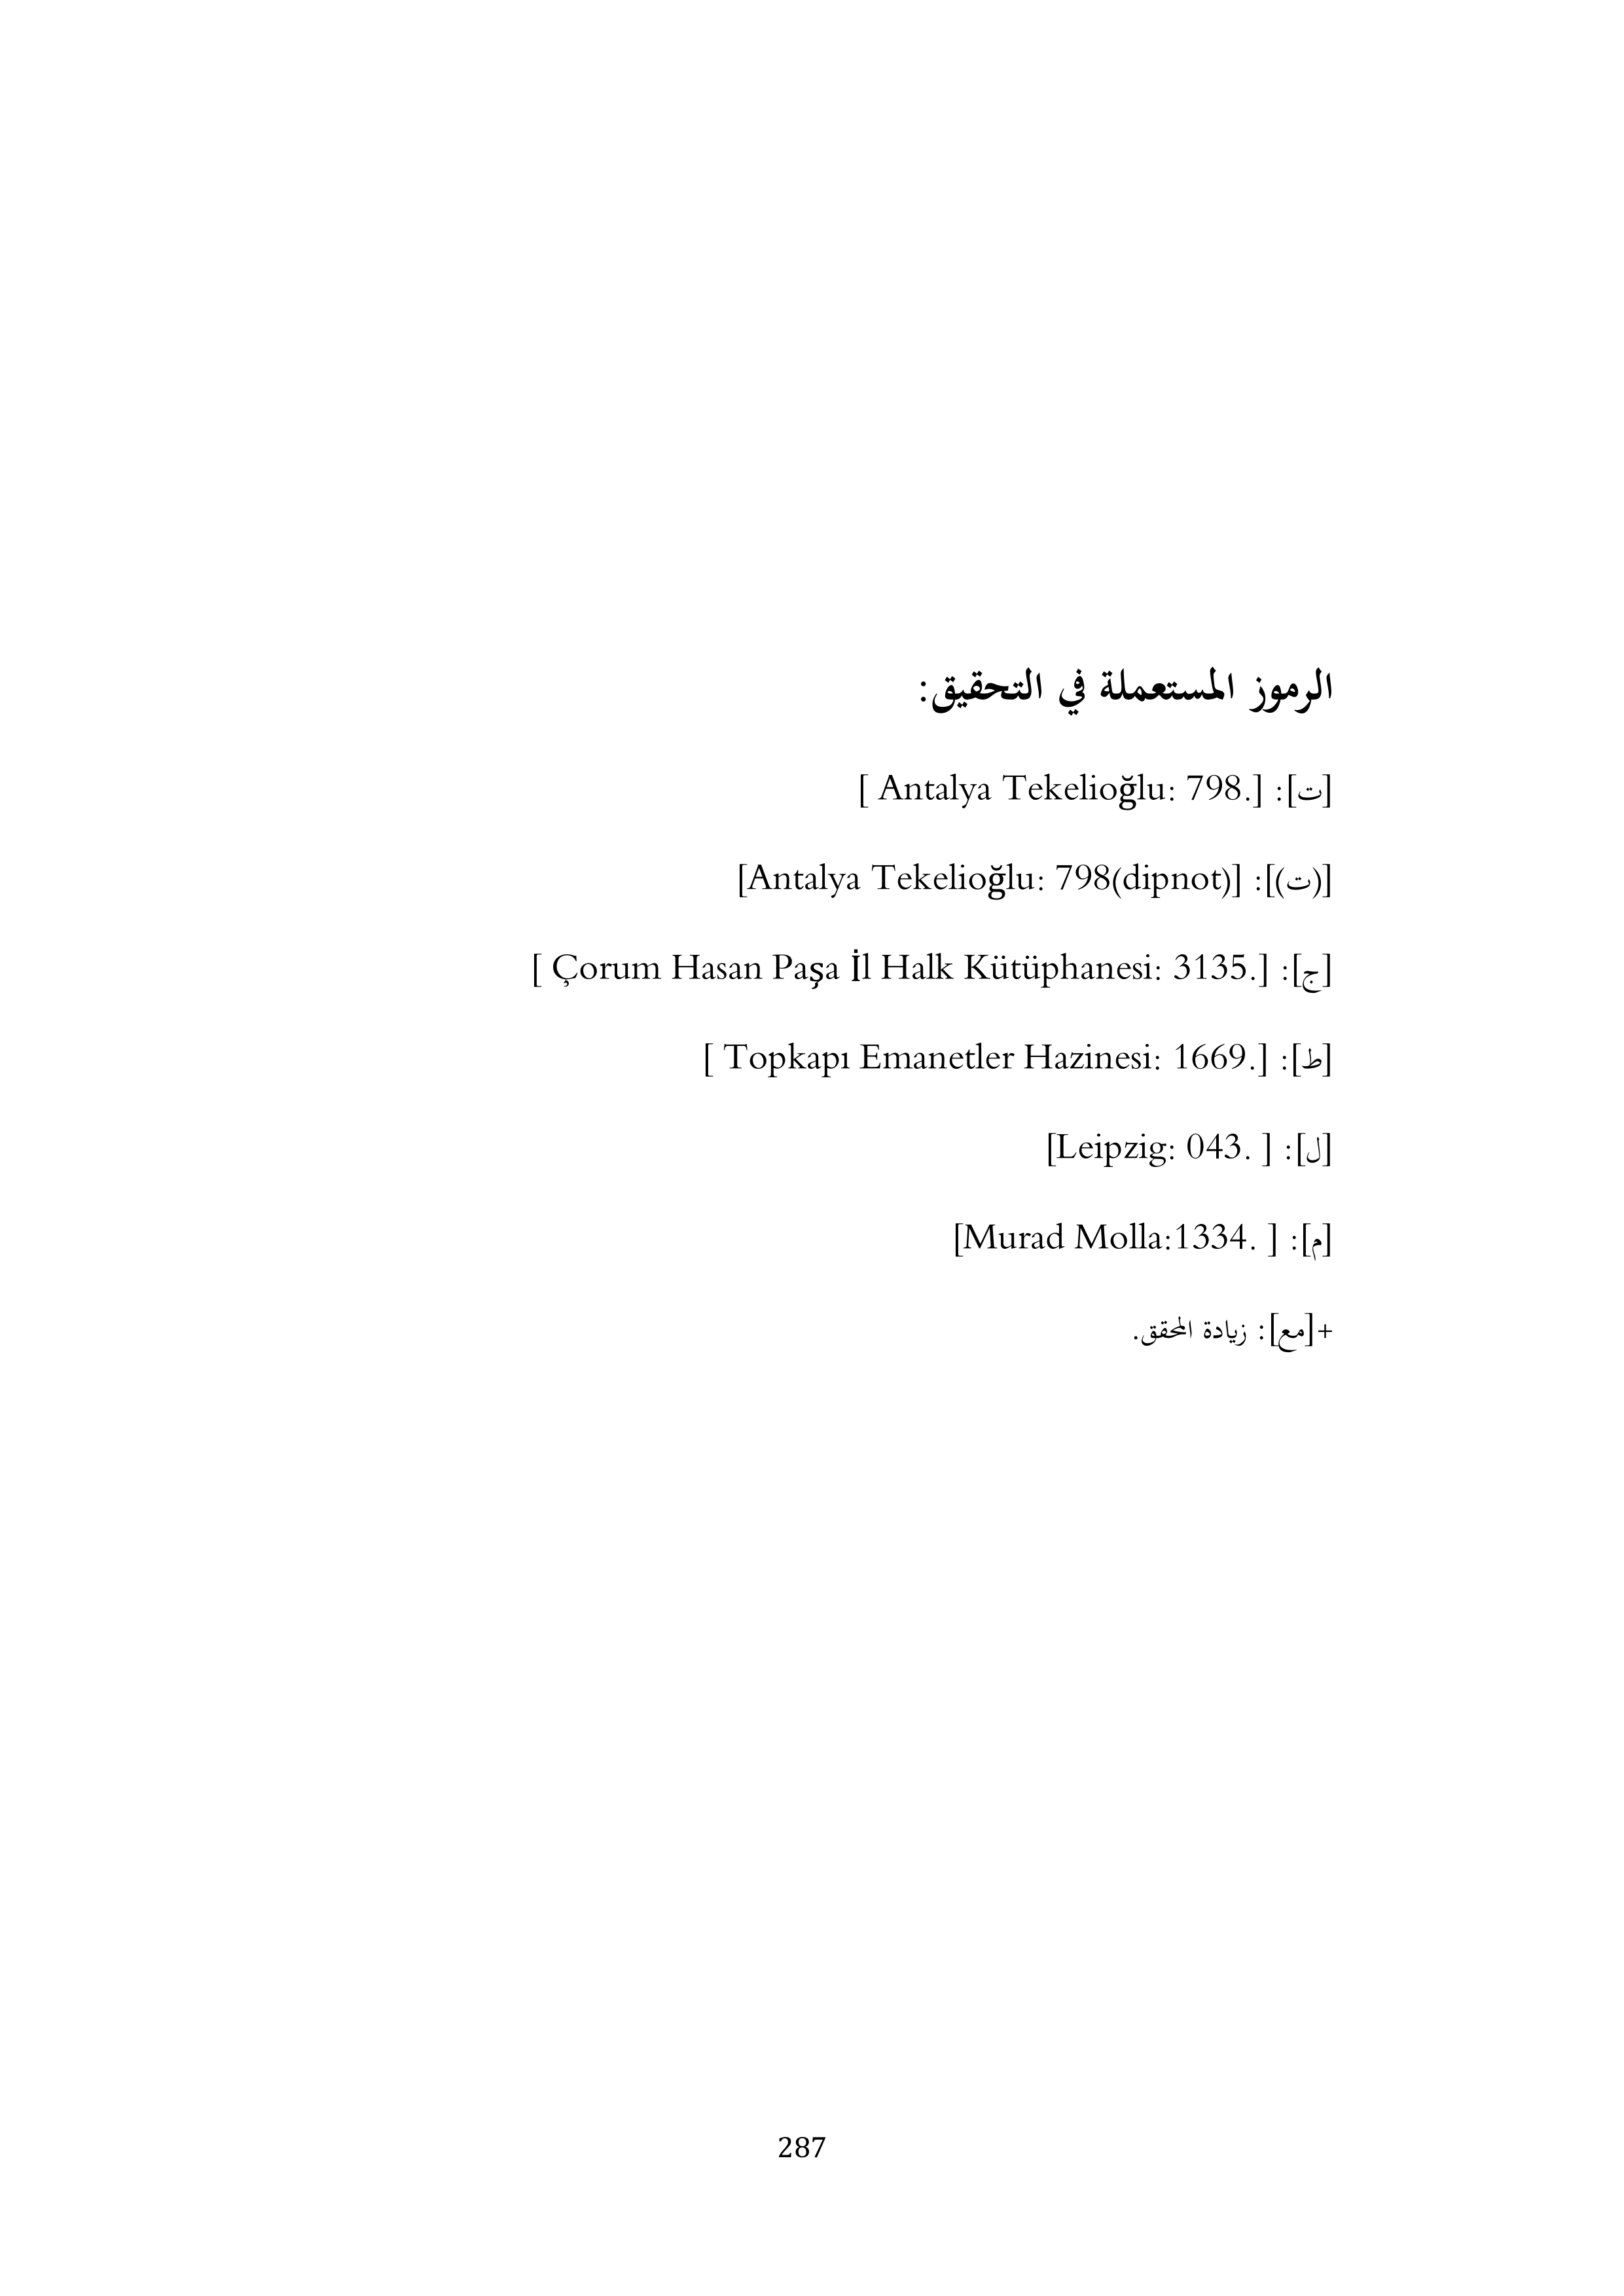 الرموز المستعملة في التحقيق:
[ت]: [Antalya Tekelioğlu: 798. ]
[(ت)]: [Antalya Tekelioğlu: 798(dipnot)]
[ج]: [Çorum Hasan Paşa İl Halk Kütüphanesi: 3135. ]
[ط]: [Topkapı Emanetler Hazinesi: 1669. ]
[ل]: [ Leipzig: 043.]
[م]: [ Murad Molla:1334.]
+[مع]: زيادة المحقق.
287